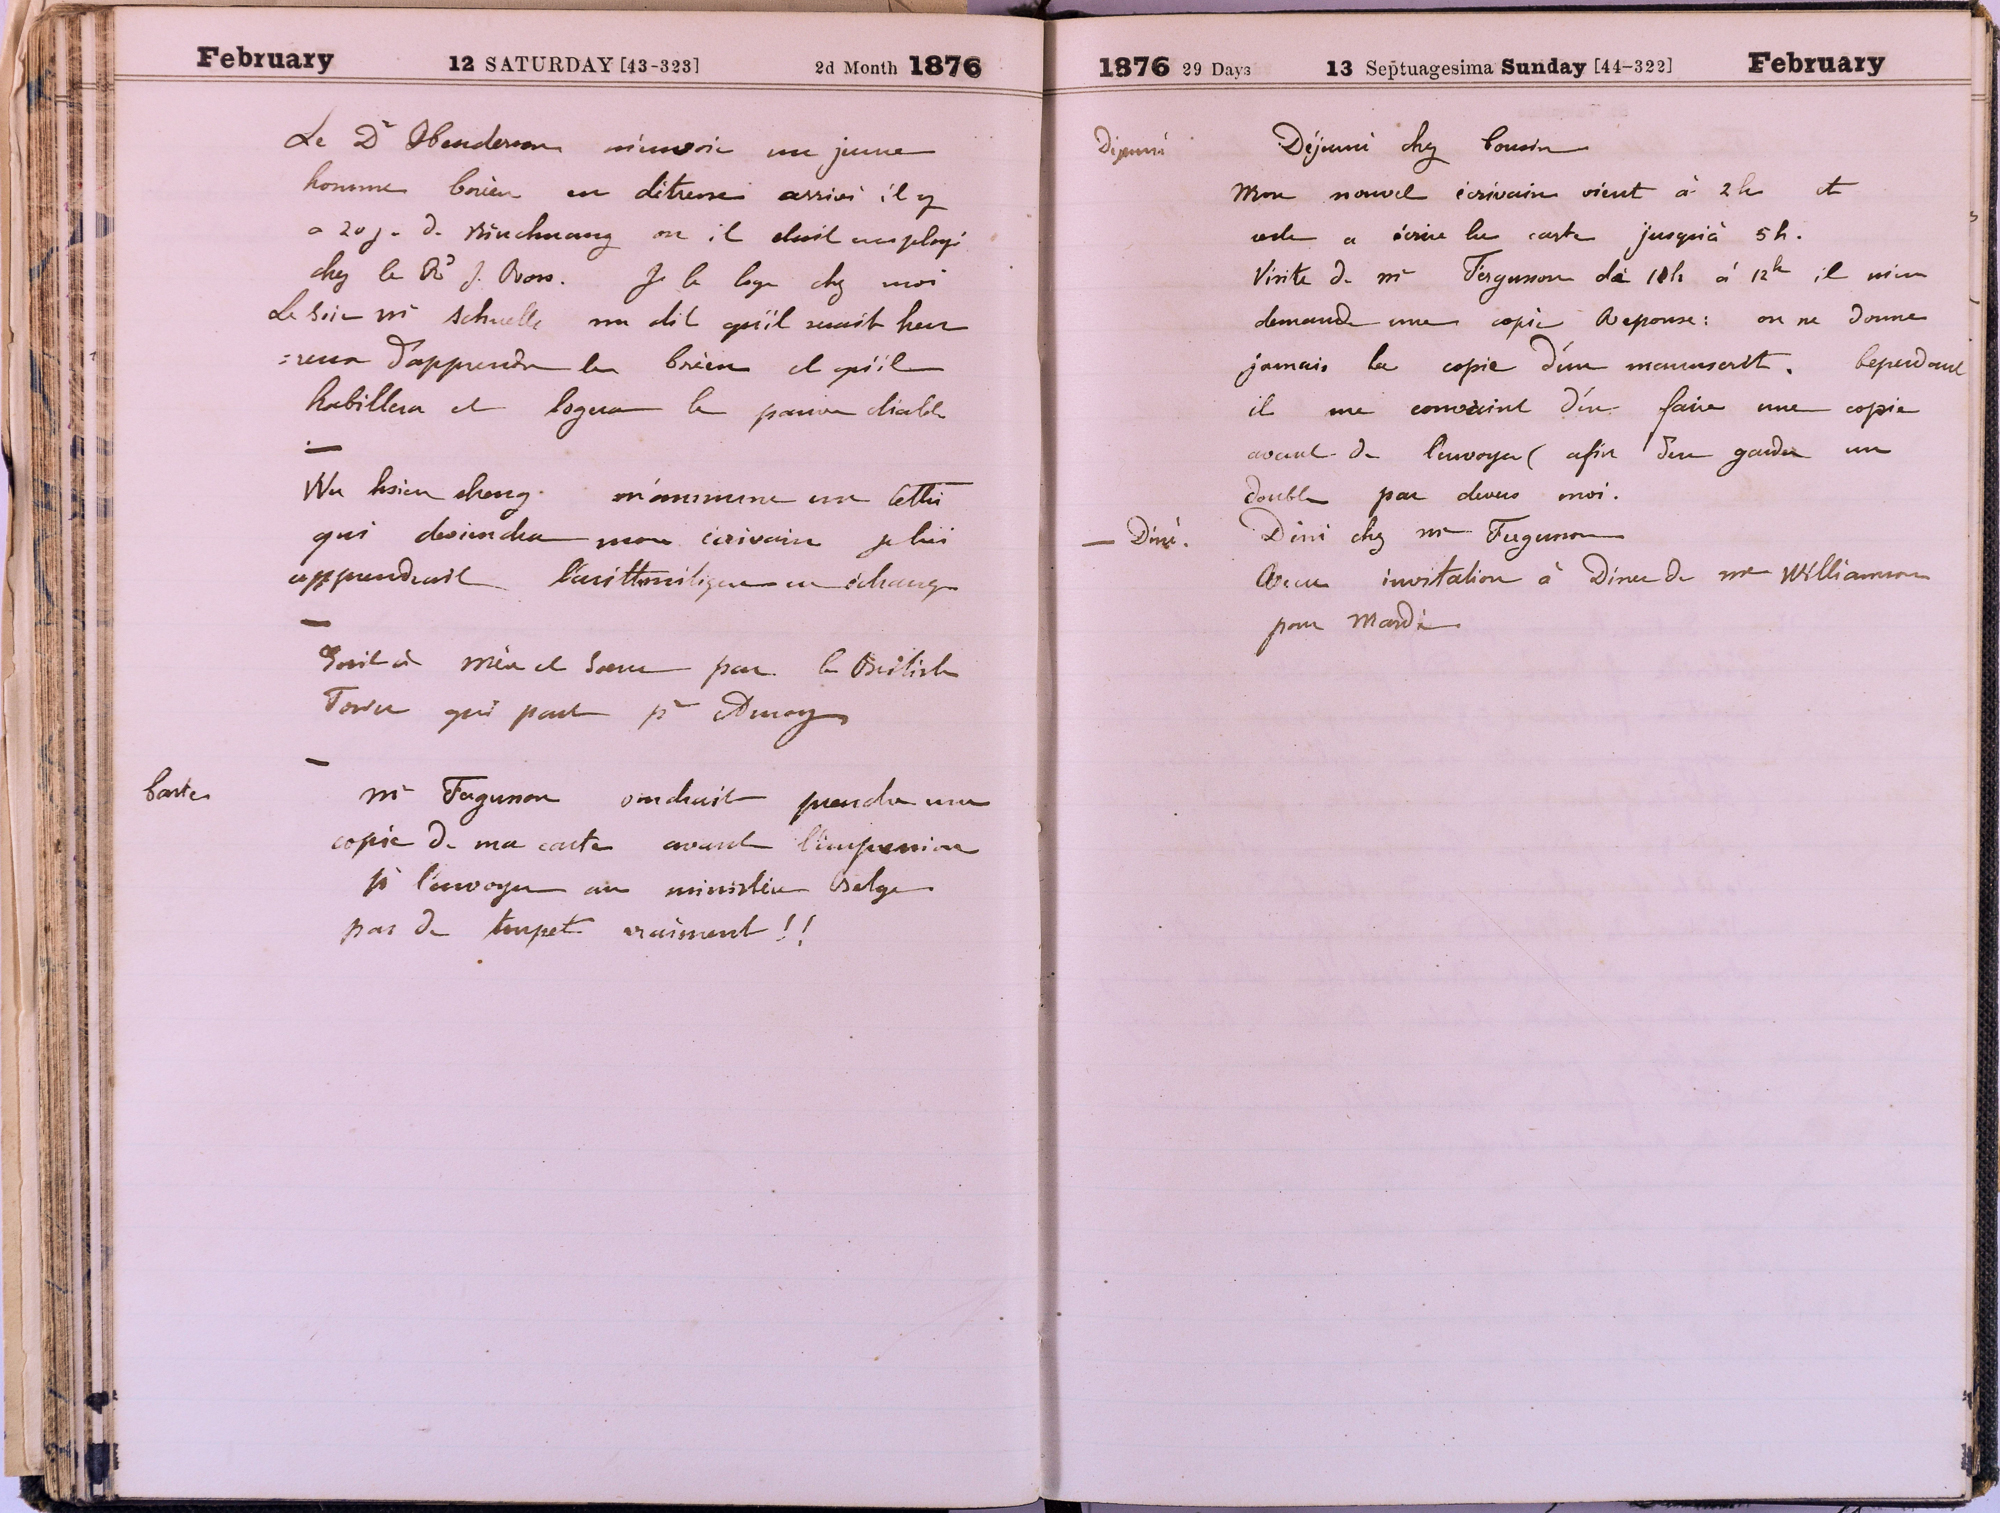 February 12 SATURDAY [43-323] 2d Month 1876
Le Dr Henderson m'envoie un jeune
homme Coréen en détresse arrivé il y
a 20 j. de Niuchuang où il était employé
chez le Rd J. Ross. Je le loge chez moi
Le Soir Mr Schuelle me dit qu'il serait heu
=reux d'apprendre le Coréen et qu'il
habillera et logera le pauvre diable
—
Wu hsien sheng m'ammène un lettré
qui deviendra mon écrivain je lui
apprendrait l'arithmétique en échange
—
Ecrit à Mère et Soeur par le British
Tower qui part pr Amoy
—
Carte
Mr Fergusson voudrait prendre une
copie de ma carte avant l'impression
pr l'envoyer au ministère Belge
pas de toupet vraiment !!
1876 29 Days 13 Septuagesima Sunday [44-322] February
Déjeuné
Déjeuné chez Cousin
Mon nouvel écrivain vient à 2h et
reste a écrire la carte jusqu'à 5h.
Visite de Mr Fergusson de 10h à 12h il m'en
demande une copie Réponse: on ne donne
jamais la copie d'un manuscrit. Cependant
il me convaint d'en faire une copie
avant de l'envoyer (afin d'en garder un
double par devers moi.
— Diné.
Diné chez Mr Fergusson
Reçu invitation à Diner de Mr Williamson
pour Mardi